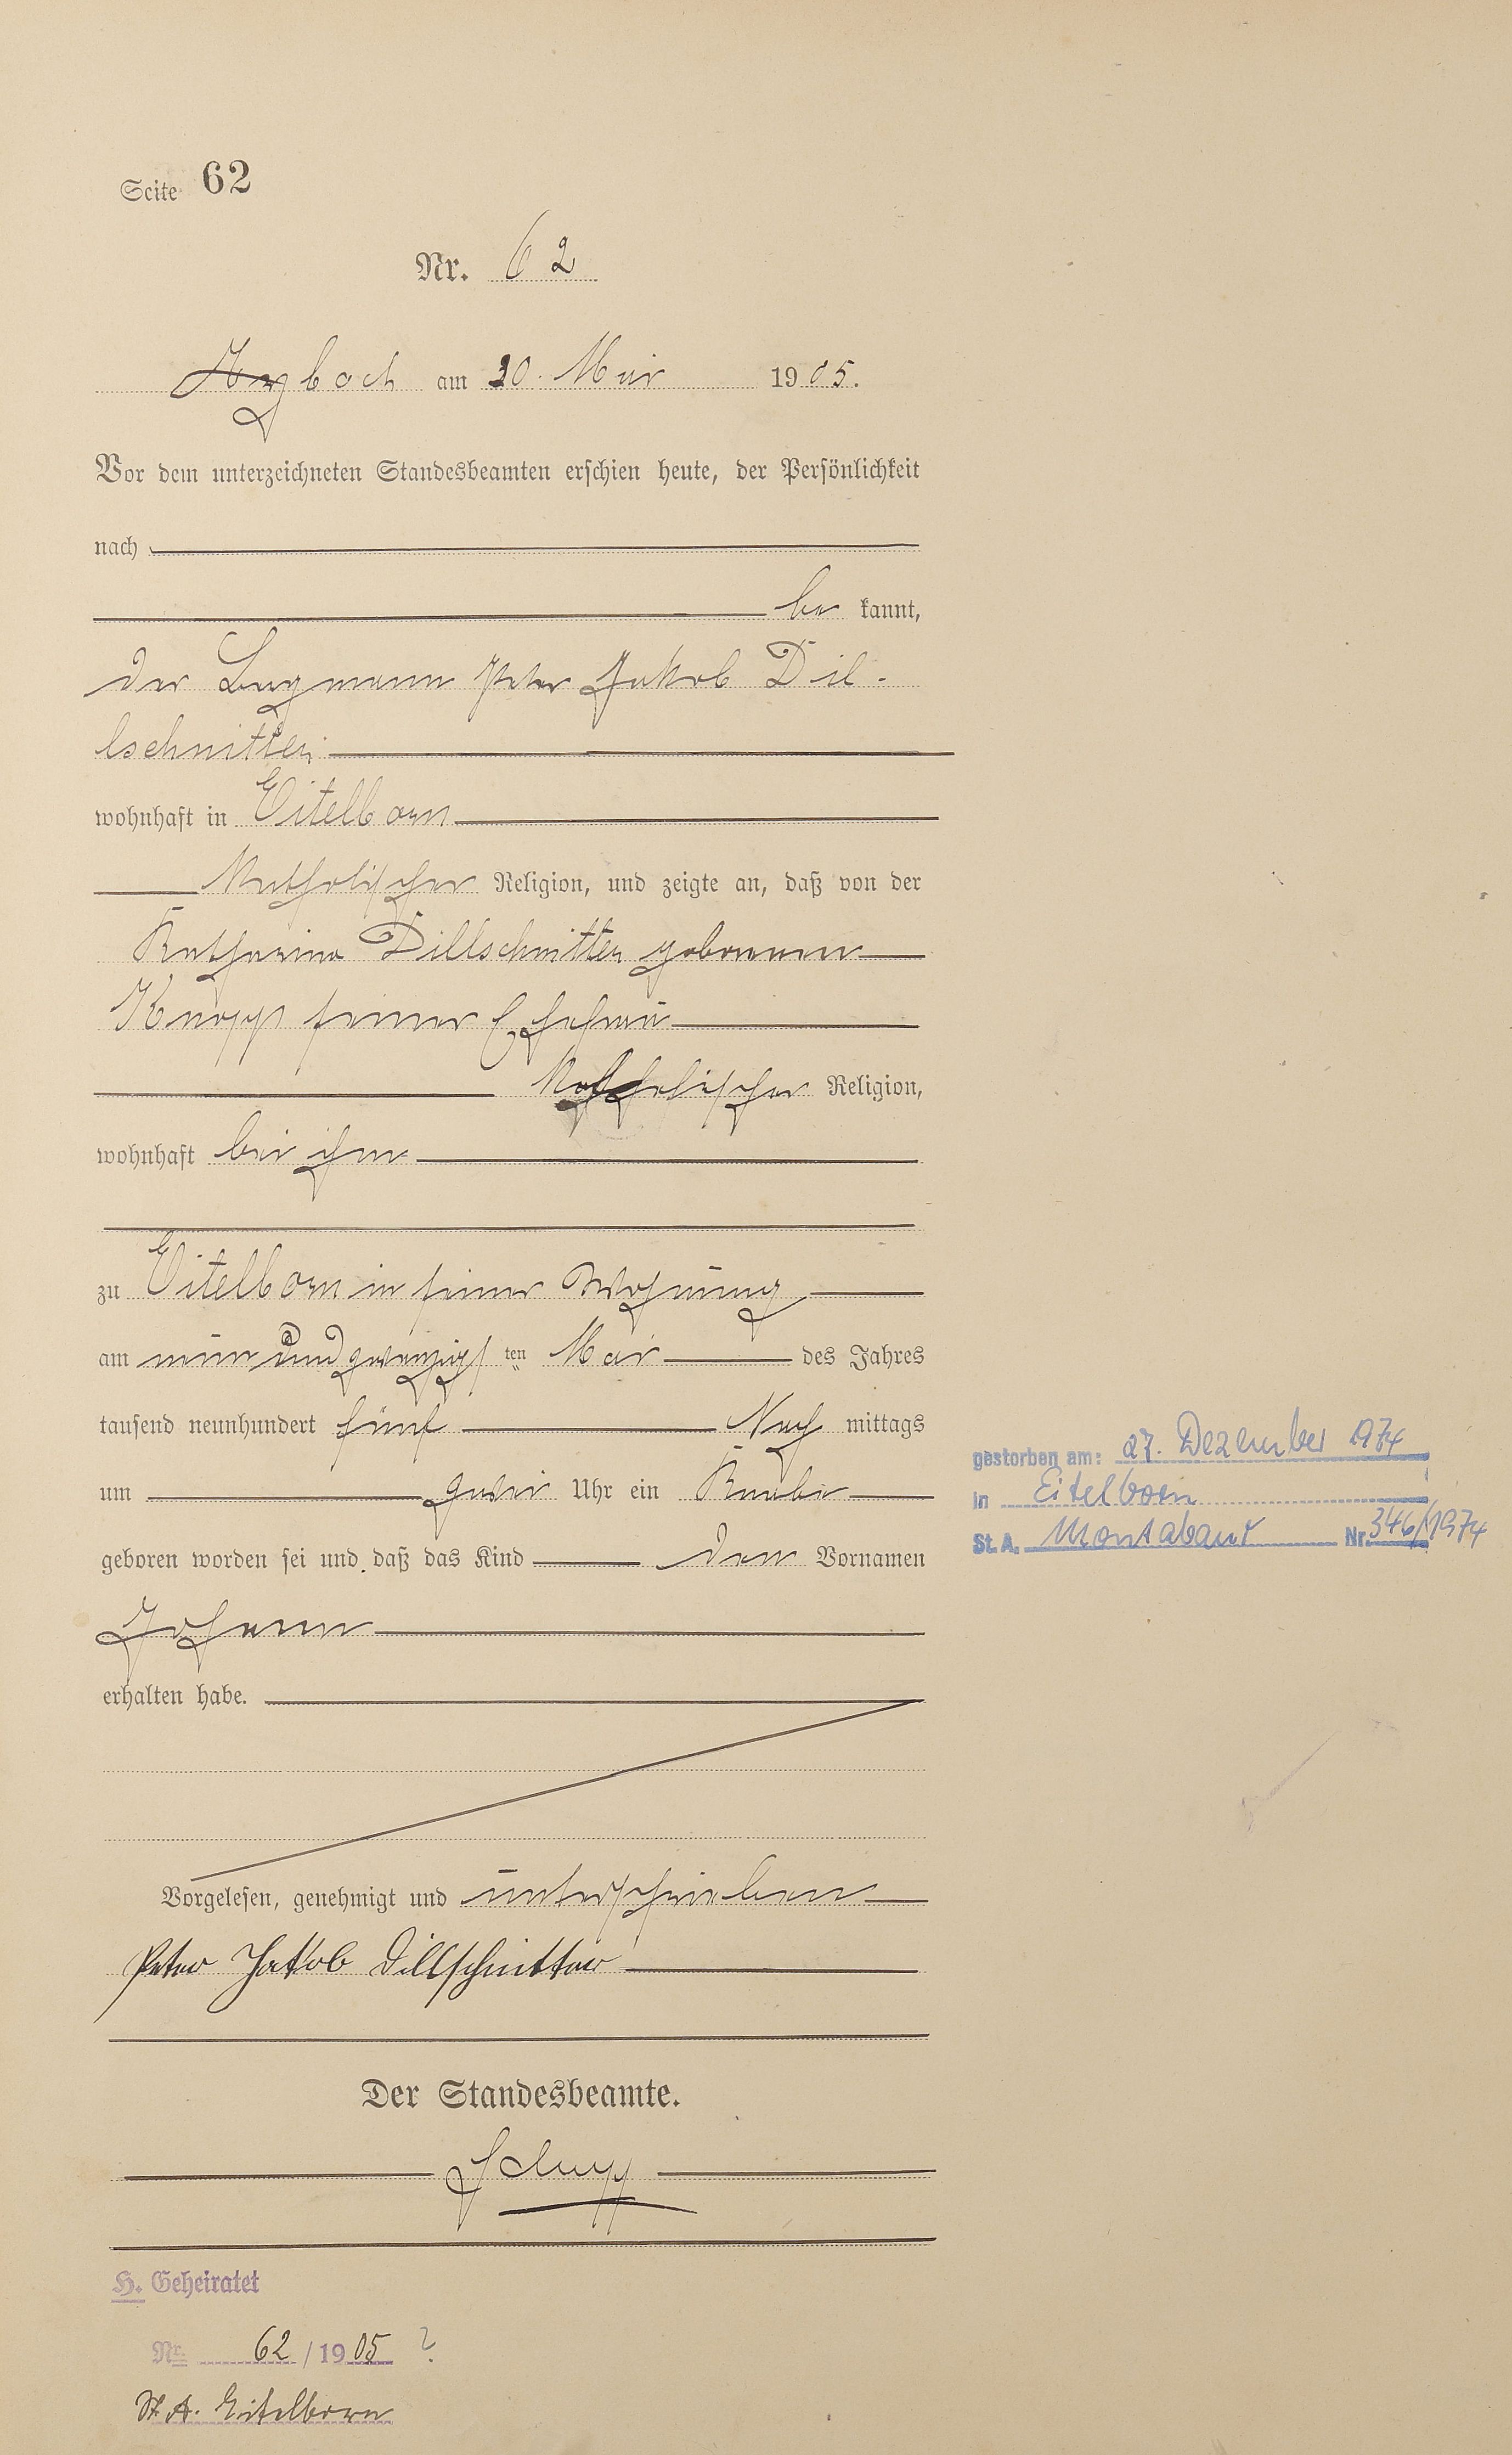 Seite 62
Nr. 62
Arzbach am 30. Mai 1905.
Vor dem unterzeichneten Standesbeamten erschien heute, der Persönlichkeit
nach
be kannt,
der Bergmann Peter Jakob Dil-
lschnitter
wohnhaft in Eitelborn
katholischer Religion, und zeigte an, daß von der
Katharina Dillschnitter geborenen
Knopp seiner Ehefrau
katholischer Religion,
wohnhaft bei ihm
zu Eitelborn in seiner Wohnung
am neun und zwanzigsten Mai des Jahres
tausend neunhundert fünf Nach mittags
um zwei Uhr ein Knabe
geboren worden sei und daß das Kind den Vornamen
Johann
erhalten habe.
Vorgelesen, genehmigt und unterschrieben
Peter Jakob Dillschnitter
Der Standesbeamte.
Schupp
gestorben am: 27. Dezember 1974
in Eitelborn
St. A. Montabaur Nr. 346/1974
H. Geheiratet
Nr. 62 / 1905 ?
St. A. Eitelborn